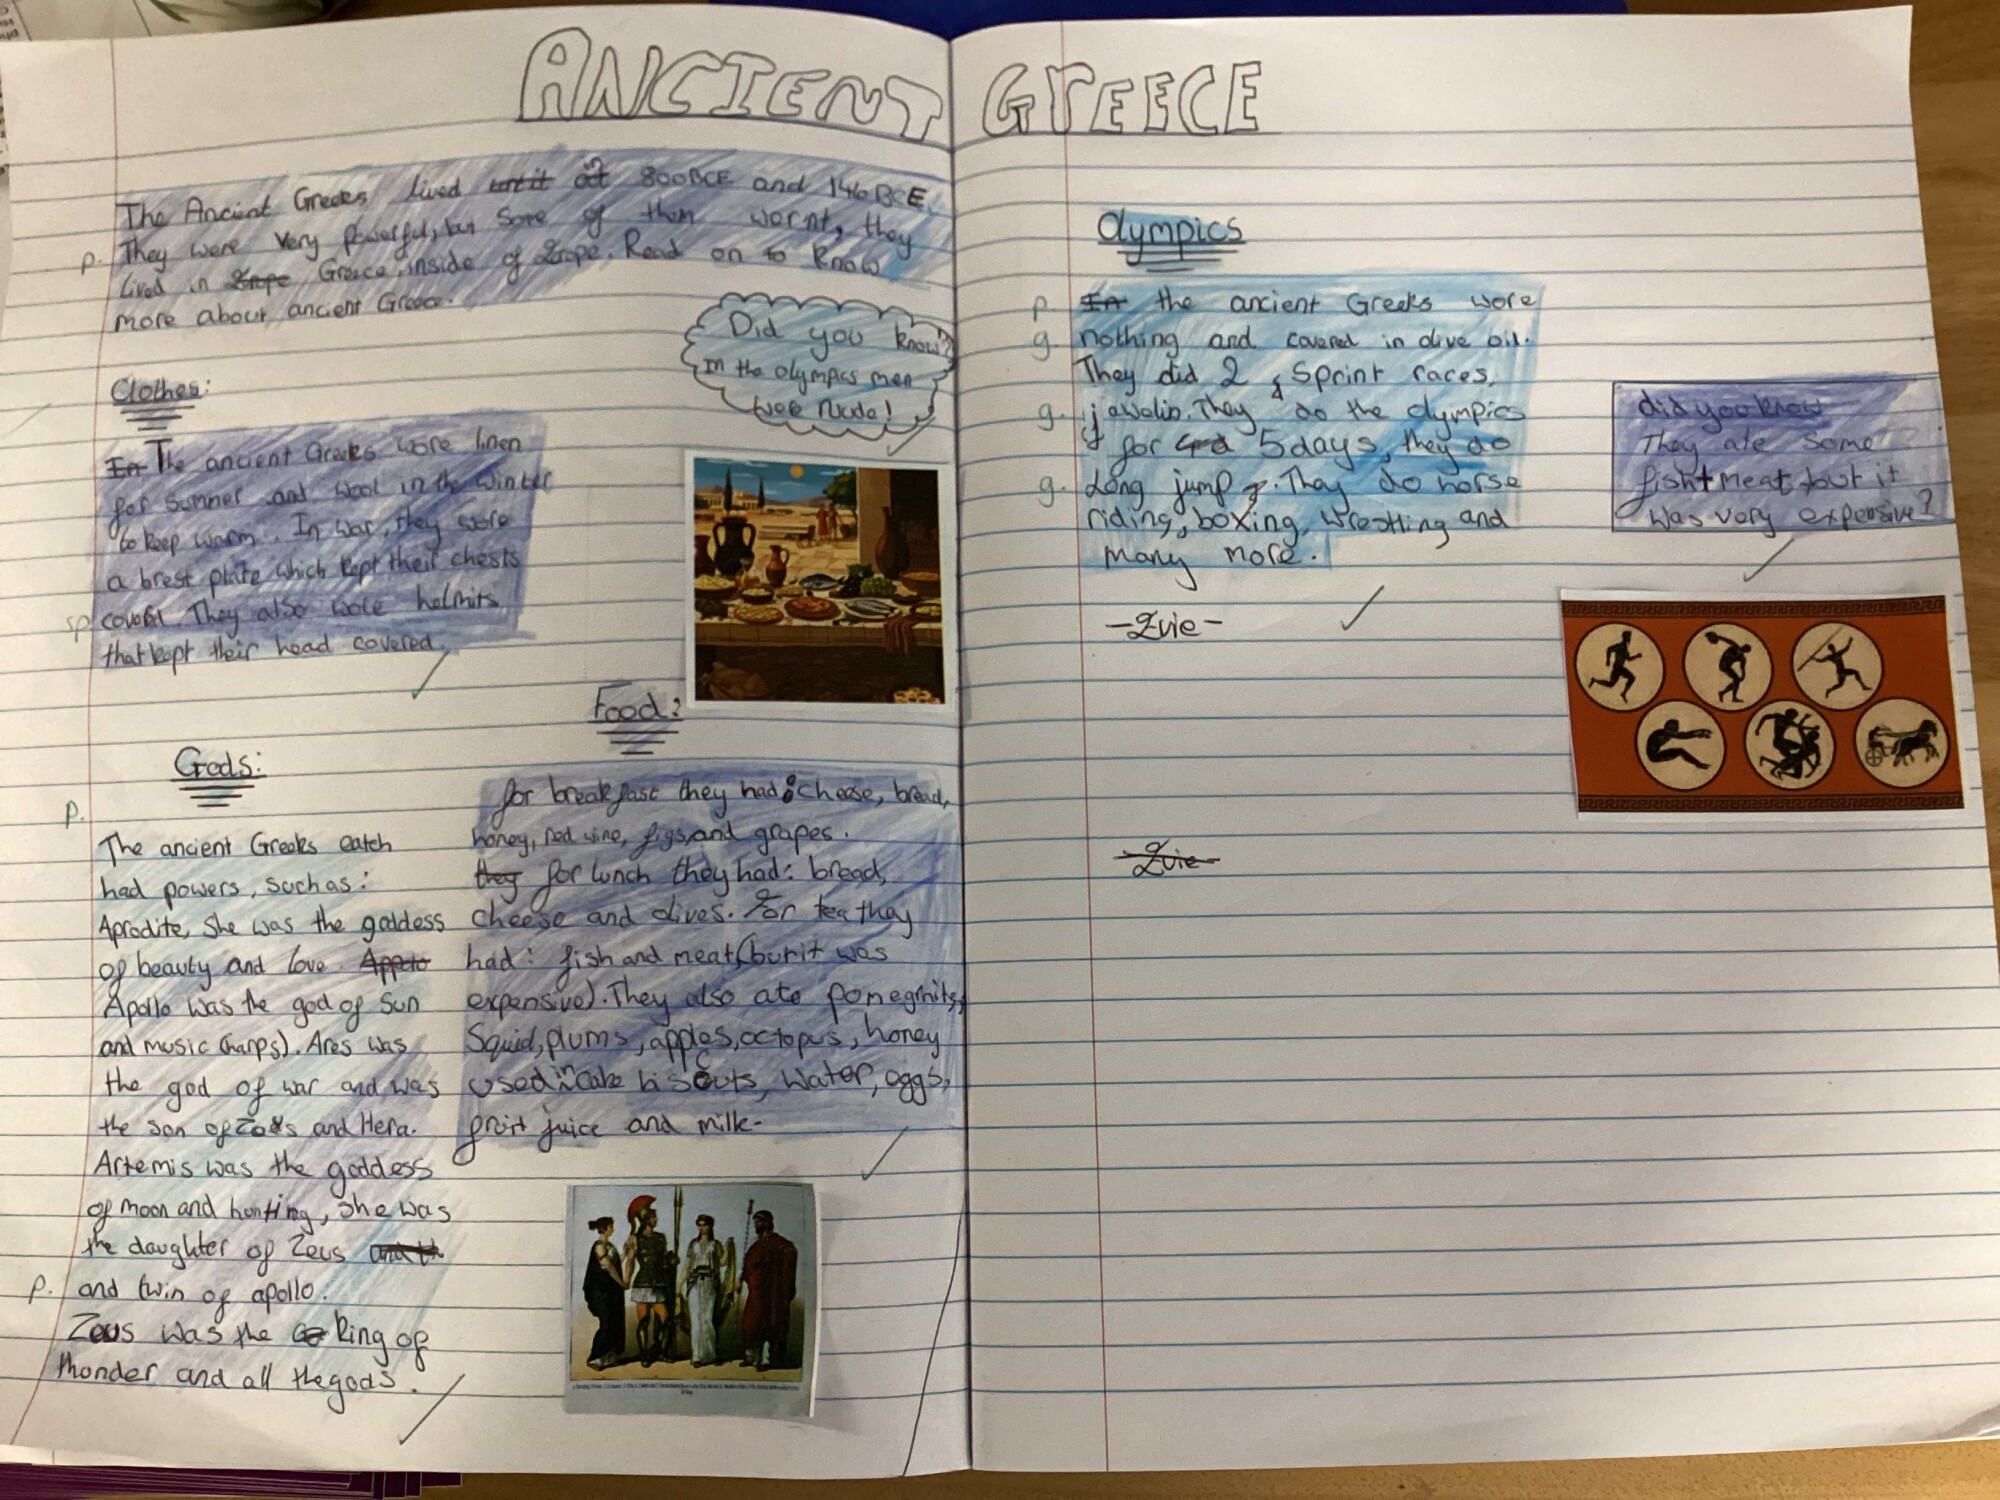 ANCIENT GrEECE
The Ancient Greeks lived in 800BCE and 146BCE.
They were very powerful, but some of them wornt, they
p.
lived in Greece, inside of Erope. Read on to know
more about ancient Greece.
Did you know?
In the olympics men
were nude!
Clothes:
The ancient Greeks wore linen
for summer and wool in the winter
to keep warm. In war, they wore
a brest plate which kept their chests
sp coverd. They also wore helmits
that kept their head covered.
Gods:
p.
The ancient Greeks eatch
had powers, such as:
Aprodite, She was the goddess
of beauty and love.
Apollo was the god of Sun
and music (harps). Ares was
the god of war and was
the son of Zeus and Hera.
Artemis was the goddess
of moon and hunting, she was
the daughter of Zeus
p. and twin of apollo.
Zeus was the king of
thonder and all the gods.
Food:
for breakfast they had: cheese, bread,
honey, red wine, figs, and grapes.
they for lunch they had: bread,
cheese and olives. For tea they
had: fish and meat (but it was
expensive). They also ate pomegrnits,
Squid, plums, apples, octopus, honey
used in cake biscuts, water, eggs,
froit juice and milk-
Olympics
p. In the ancient Greeks wore
g. nothing and covered in olive oil.
They did 2 Sprint races,
g. javolin. They do the olympics
for 5 days, they do
g. Long jump. They do horse
riding, boxing, wrestling and
many more.
-Evie-
did you know
They ate some
fish+meat, but it
was very expensive?
Evie